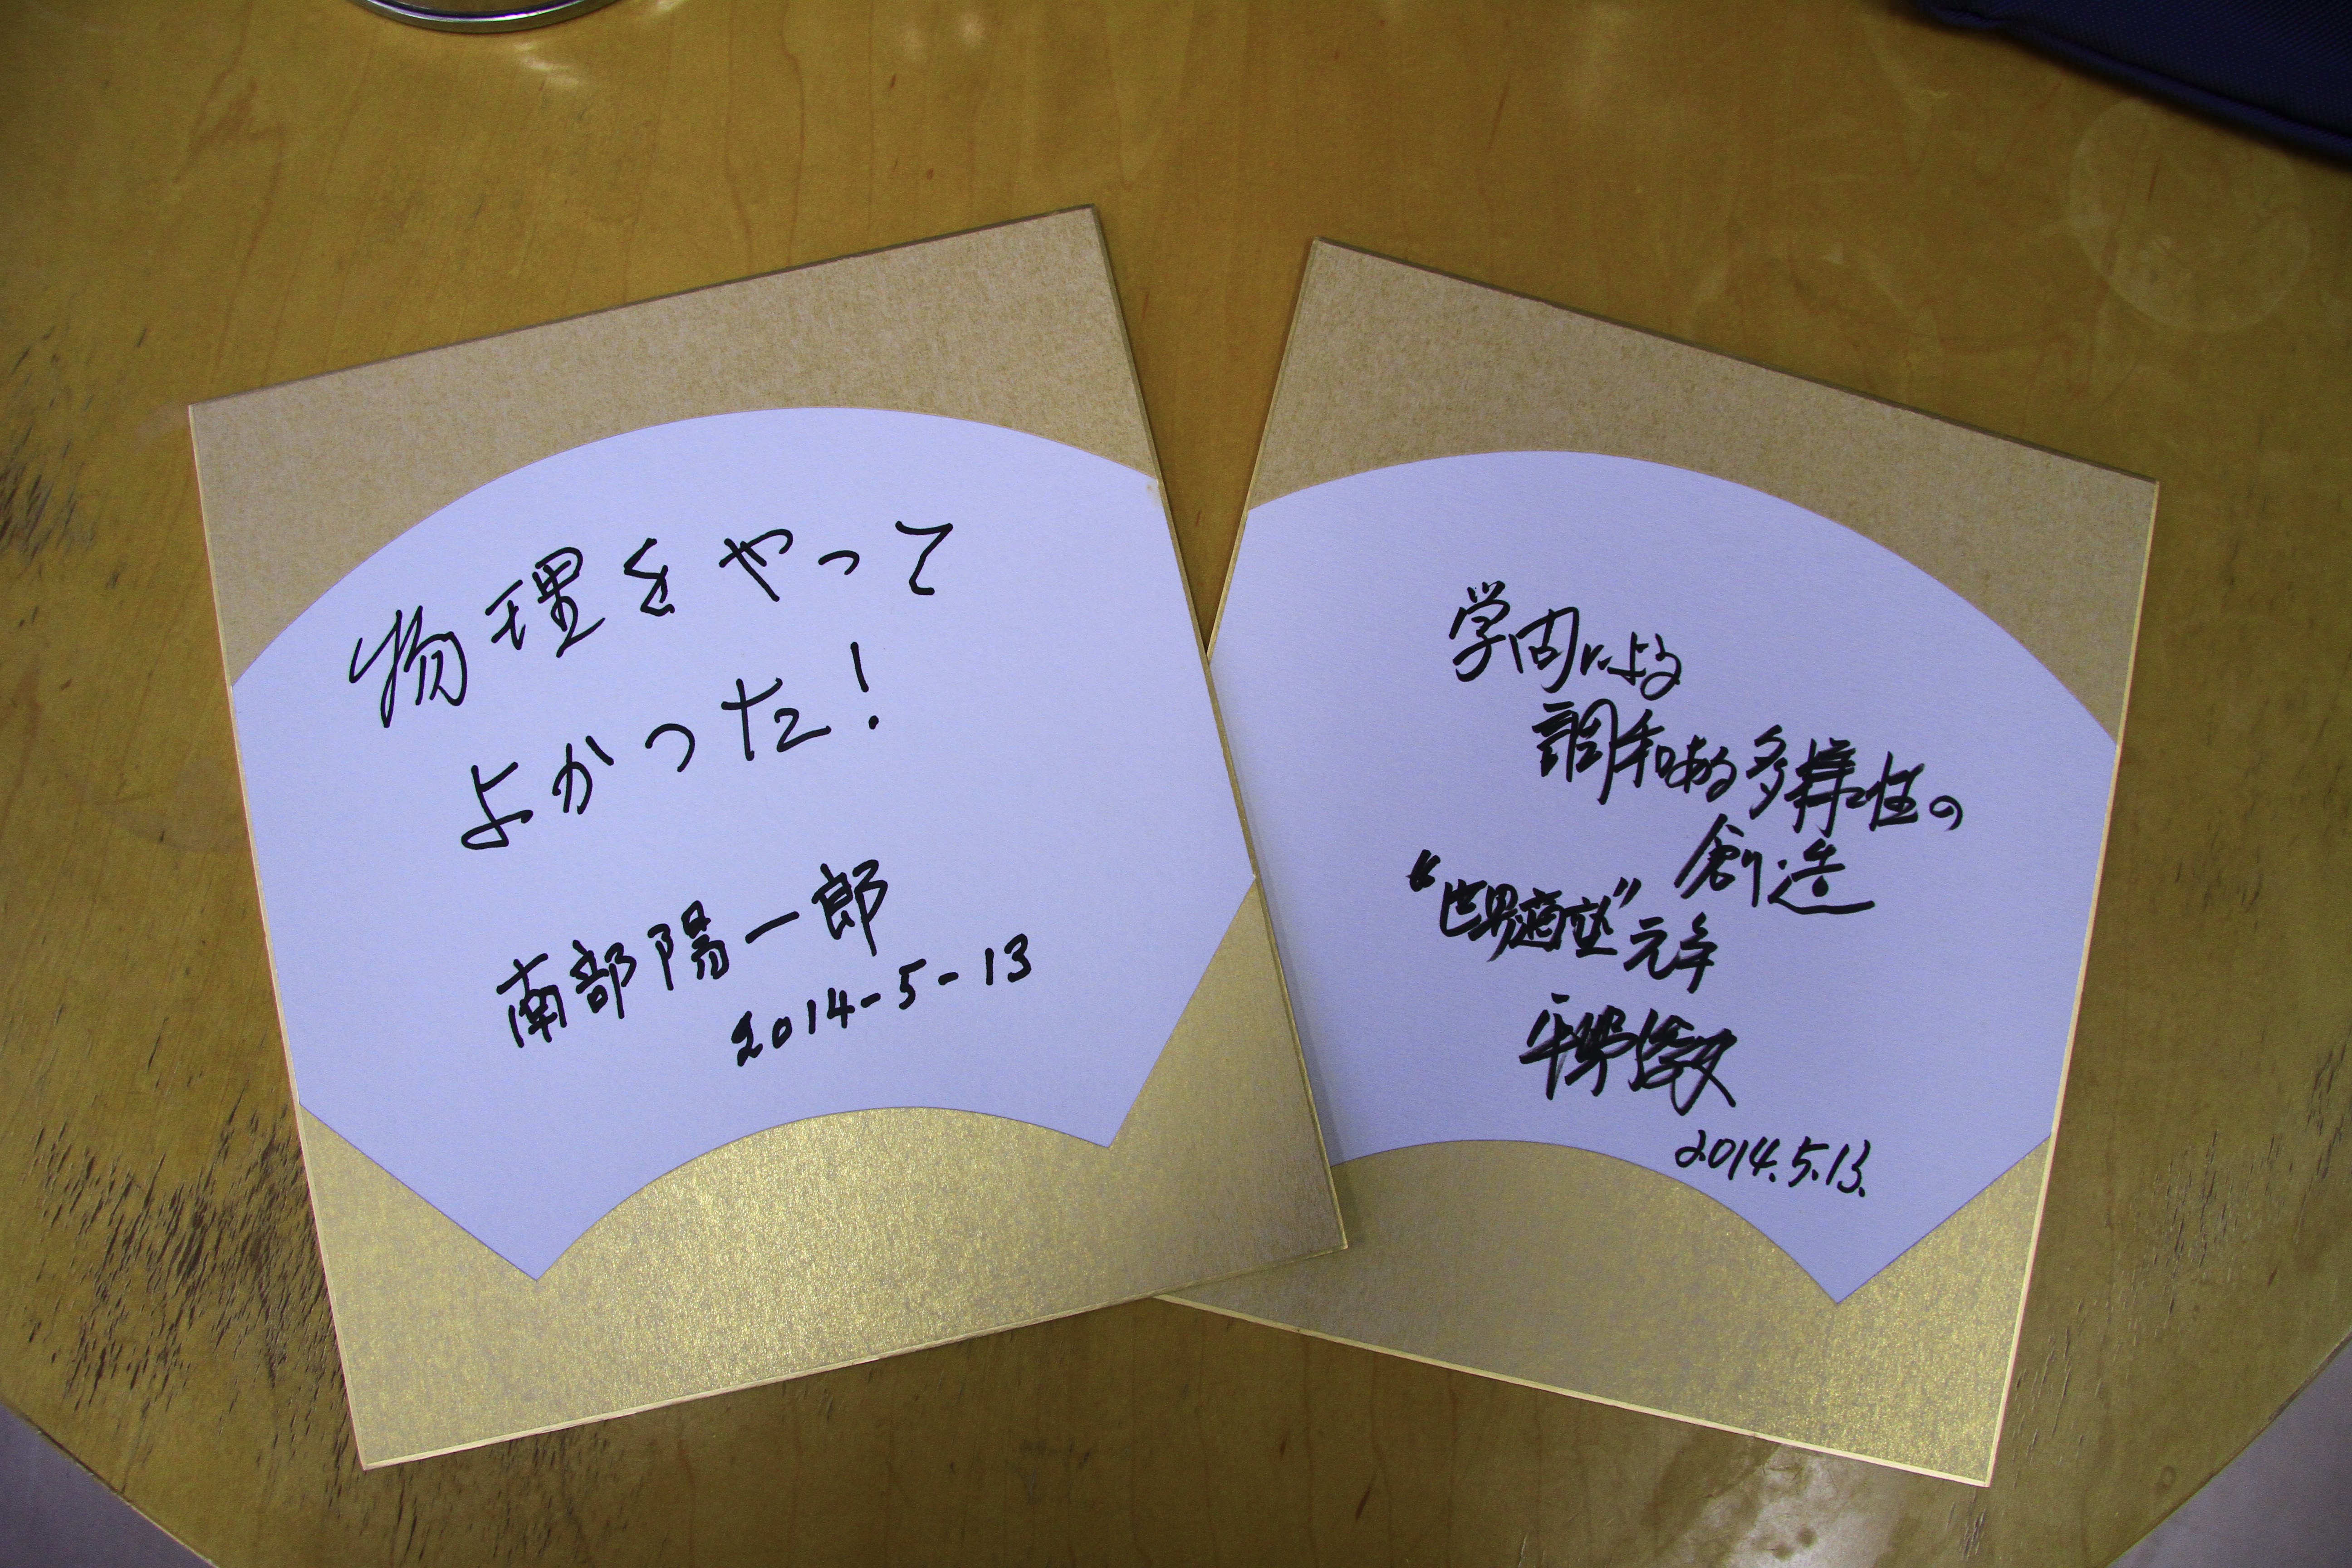 物理をやって
よかった!
南部陽一郎
2014-5-13
学問による
調和ある多様性の
創造
“世界適塾”元年
平野俊夫
2014.5.13.